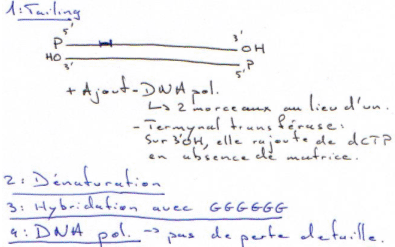 1: Tailing
5'
P 3'
HO OH
3' P
5'
+ Ajout - DNA pol.
↳ 2 morceaux au lieu d'un.
- Termynal transférase:
Sur 3'OH, elle rajoute de dCTP
en absence de matrice.
2: Dénaturation
3: Hybridation avec GGGGGG
4: DNA pol. → pas de perte de taille.